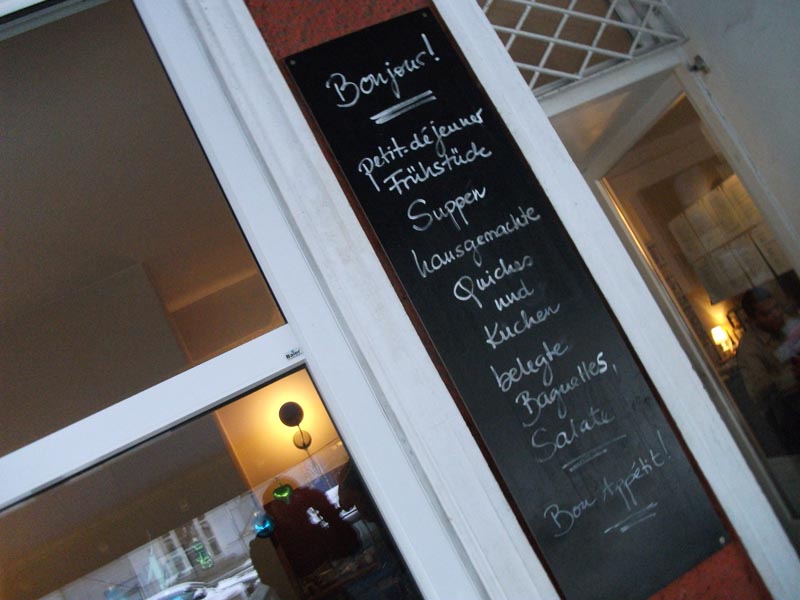 Bonjour!
Petit-déjeuner
Frühstück
Suppen
hausgemachte
Quiches
und
Kuchen
belegte
Baguettes,
Salate
Bon Appétit!